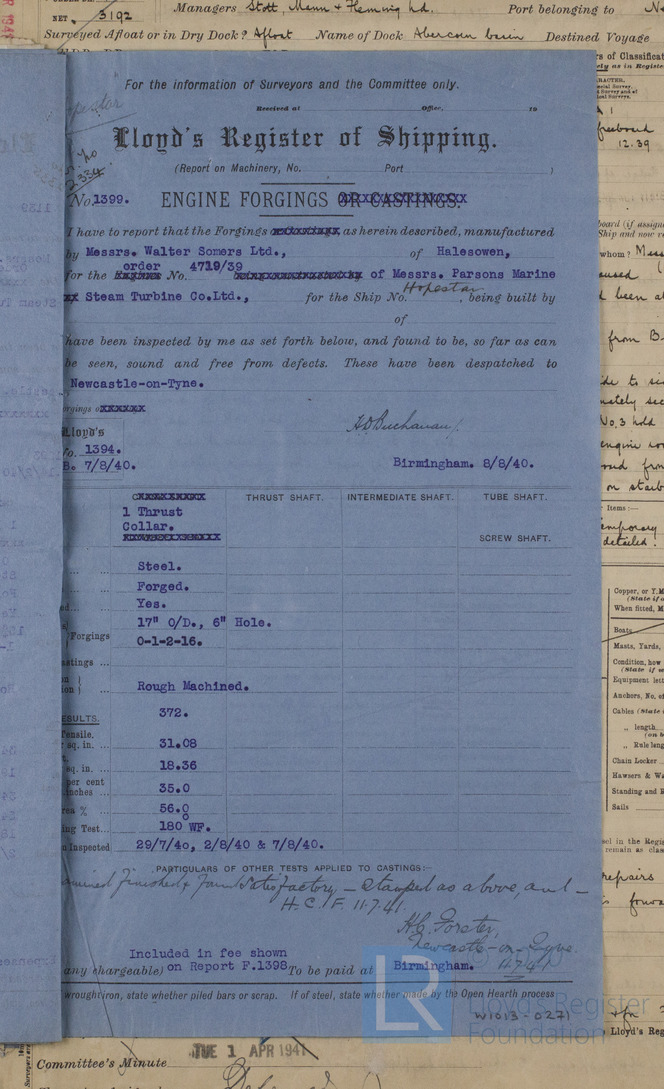 NET. 3192 Managers Stott, Mann & Fleming Ltd. Port belonging to
Surveyed Afloat or in Dry Dock? Afloat Name of Dock Abercorn basin Destined Voyage
For the information of Surveyors and the Committee only.
Received at Office, 19
Lloyd's Register of Shipping.
(Report on Machinery, No. Port )
No. 1399. ENGINE FORGINGS OR CASTINGS.
I have to report that the Forgings as herein described, manufactured
by Messrs. Walter Somers Ltd., of Halesowen,
for the order No. 4719/39 of Messrs. Parsons Marine
Steam Turbine Co.Ltd., for the Ship No. Hopestar, being built by
of
have been inspected by me as set forth below, and found to be, so far as can
be seen, sound and free from defects. These have been despatched to
Newcastle-on-Tyne.
Lloyd's
No. 1394.
B. 7/8/40.
H D Buchanan.
Birmingham. 8/8/40.
THRUST SHAFT. INTERMEDIATE SHAFT. TUBE SHAFT.
SCREW SHAFT.
1 Thrust
Collar.
Steel.
Forged.
Yes.
17" O/D., 6" Hole.
Forgings 0-1-2-16.
Rough Machined.
372.
31.08
sq. in. ... 18.36
per cent
35.0
56.0
180° WF.
Inspected 29/7/40, 2/8/40 & 7/8/40.
PARTICULARS OF OTHER TESTS APPLIED TO CASTINGS:—
Finished & Found Satisfactory — Stamped as above, and —
H.C.F. 11.7.41.
H.C. Forster,
Newcastle-on-Tyne
11.7.41
Included in fee shown
any chargeable) on Report F.1398 To be paid at Birmingham.
wrought iron, state whether piled bars or scrap. If of steel, state whether made by the Open Hearth process
W1013-0271
LR
Lloyd's Register
Foundation
Committee's Minute
TUE 1 APR 1941
freeboard
12.39
from B
No. 3 hold
engine
Items :—
temporary
detailed.
Boats
Masts, Yards,
Equipment
Anchors, No. of
Cables (State
„ length
„ Rule leng
Chain Locker
Hawsers & Wa
Standing and R
Sails
repairs
Lloyd's Reg